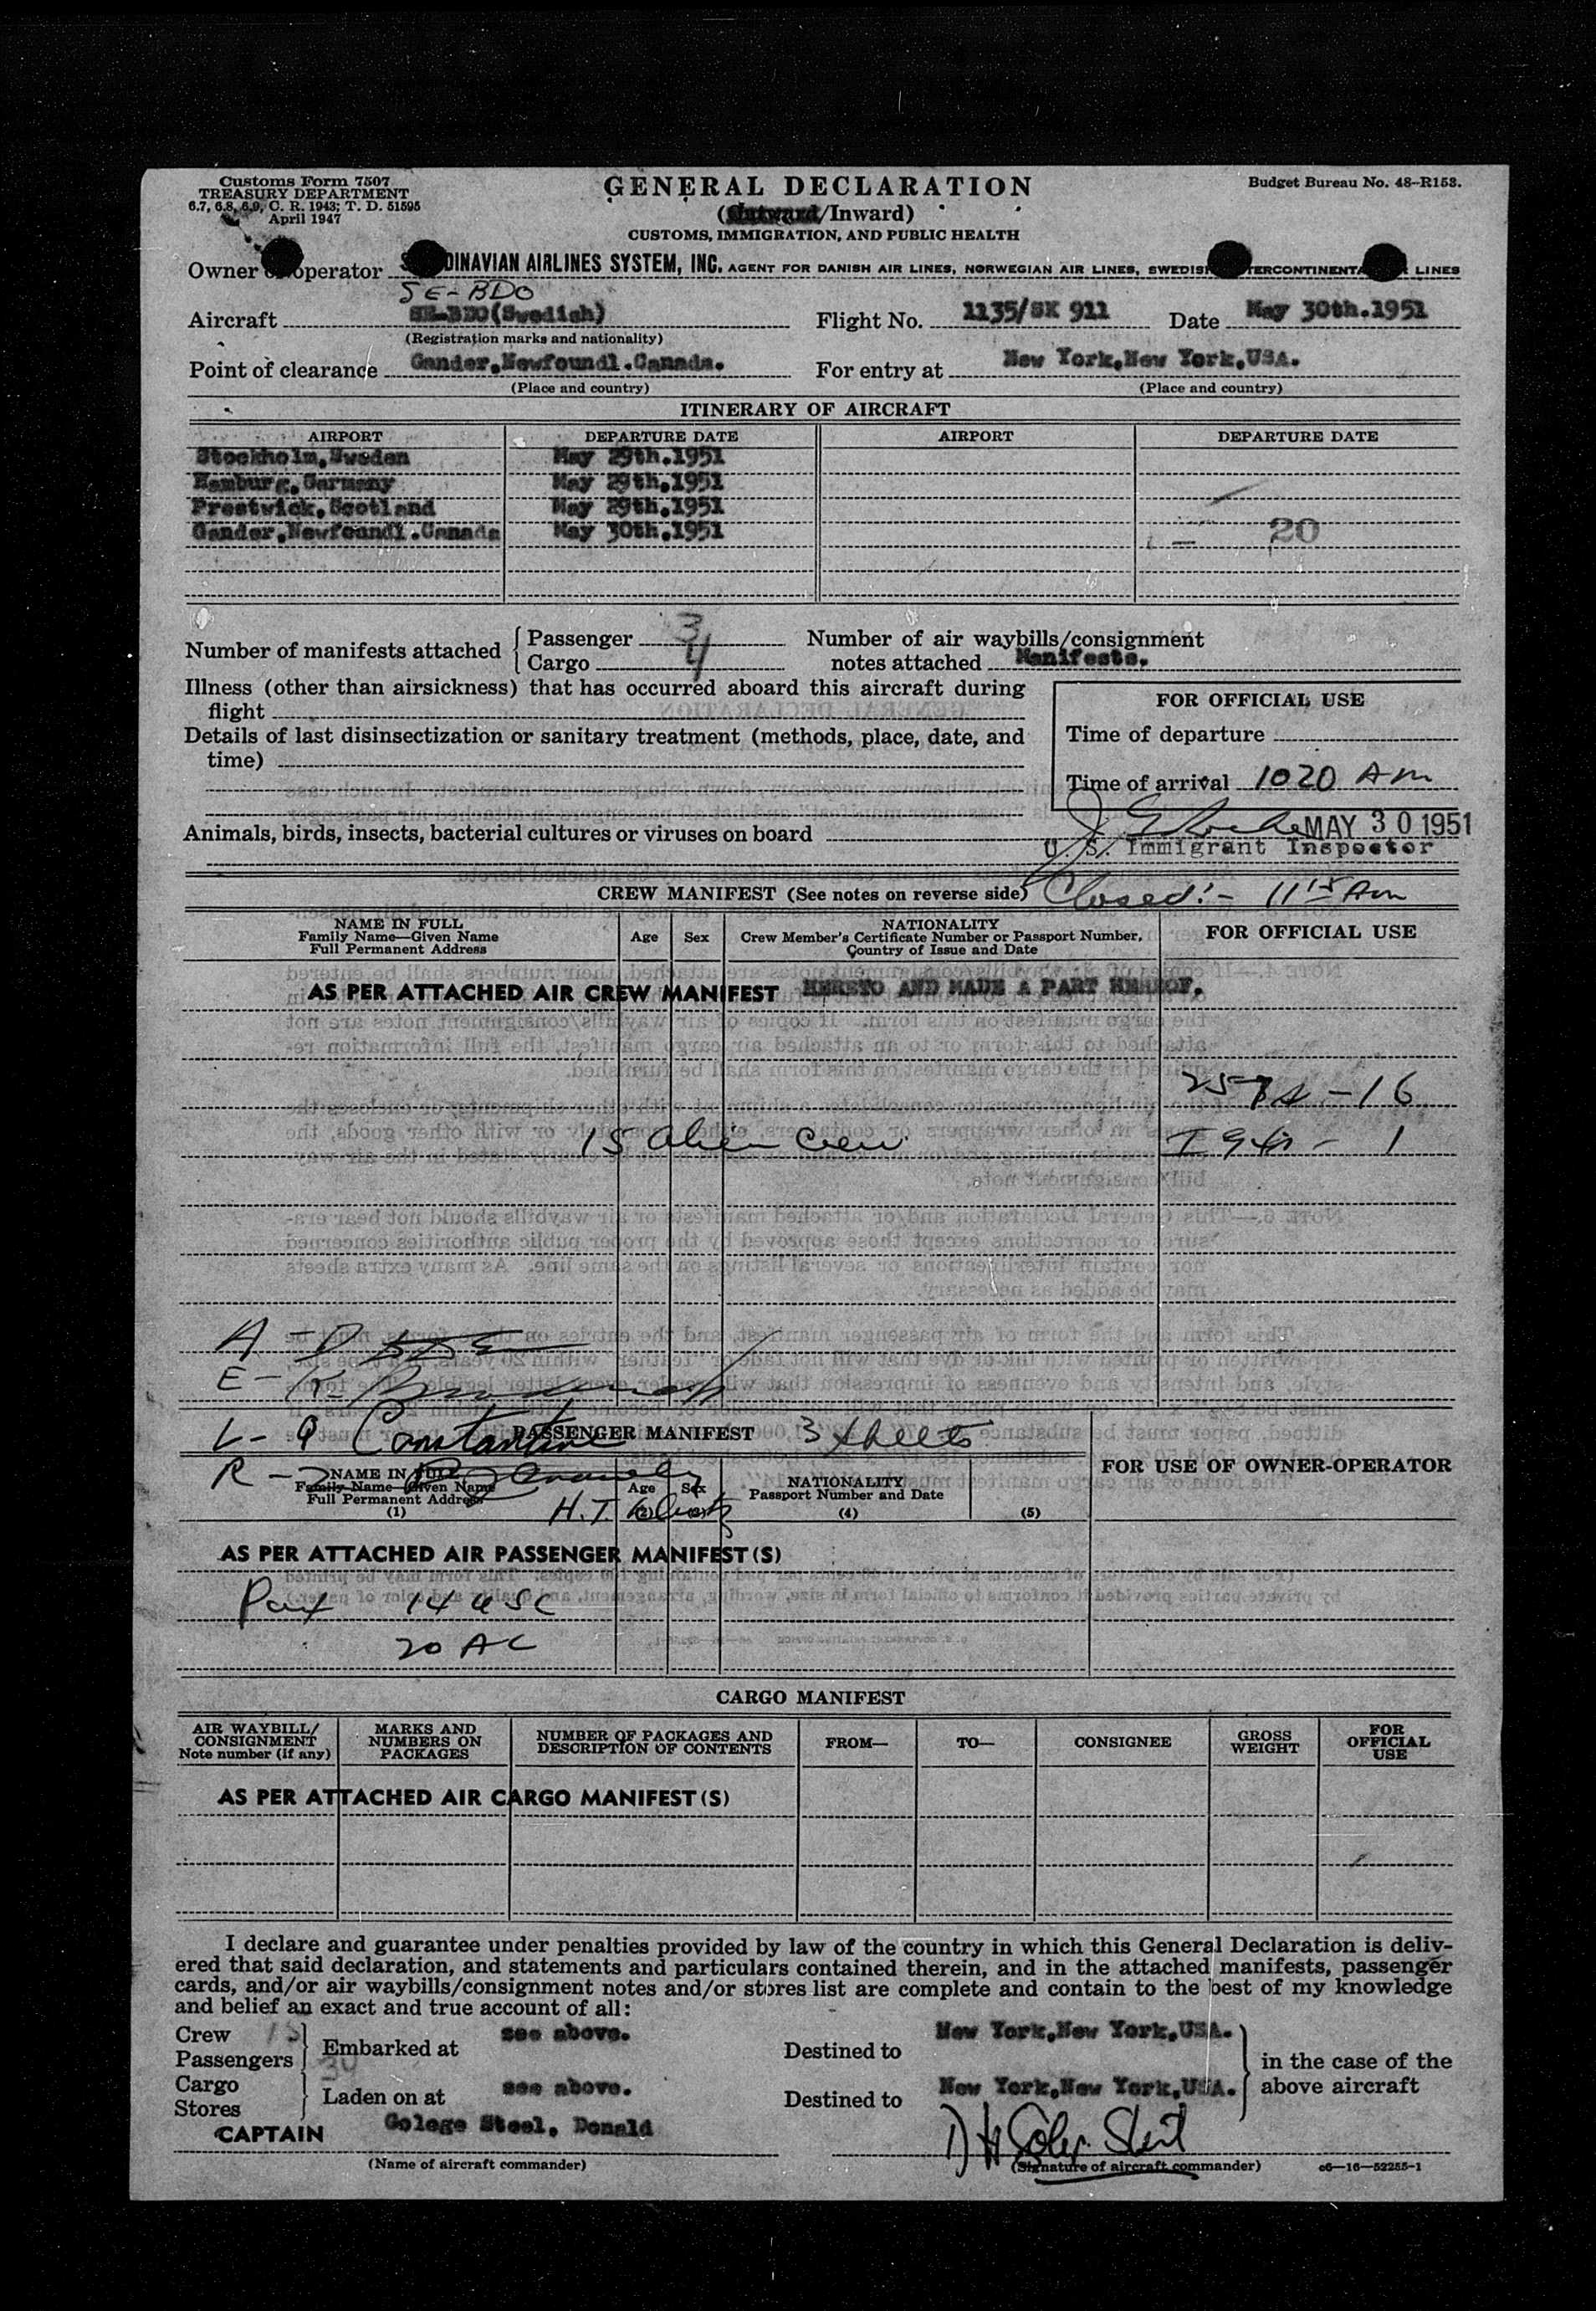 Customs Form 7507
TREASURY DEPARTMENT
6.7, 6.8, 6.9, C. R. 1943; T. D. 51595
April 1947
GENERAL DECLARATION
(Outward/Inward)
CUSTOMS, IMMIGRATION, AND PUBLIC HEALTH
Budget Bureau No. 48-R153.
Owner or operator S DINAVIAN AIRLINES SYSTEM, INC. AGENT FOR DANISH AIR LINES, NORWEGIAN AIR LINES, SWEDIS TERCONTINENTA LINES
SE-BDO
Aircraft SE-BDO(Swedish) Flight No. 1135/SK 911 Date May 30th.1951
(Registration marks and nationality)
Point of clearance Gander,Newfoundl.Canada. For entry at New York,New York,USA.
(Place and country) (Place and country)
ITINERARY OF AIRCRAFT
AIRPORT DEPARTURE DATE AIRPORT DEPARTURE DATE
Stockholm,Sweden May 29th.1951
Hamburg,Germany May 29th,1951
Prestwick,Scotland May 29th.1951
Gander,Newfoundl.Canada May 30th,1951
20
Number of manifests attached Passenger 3 Number of air waybills/consignment
Cargo 4 notes attached Manifests.
Illness (other than airsickness) that has occurred aboard this aircraft during
flight
Details of last disinsectization or sanitary treatment (methods, place, date, and
time)
FOR OFFICIAL USE
Time of departure
Time of arrival 1020 AM
Animals, birds, insects, bacterial cultures or viruses on board
MAY 30 1951
U. S. Immigrant Inspector
CREW MANIFEST (See notes on reverse side) Closed:- 11 15 AM
NAME IN FULL
Family Name—Given Name
Full Permanent Address
Age Sex
NATIONALITY
Crew Member's Certificate Number or Passport Number,
Country of Issue and Date
FOR OFFICIAL USE
AS PER ATTACHED AIR CREW MANIFEST HERETO AND MADE A PART HEREOF.
- 16
15 Alien Crew - 1
A -
E - R.
L - Constantine
PASSENGER MANIFEST 3 sheets
R -
NAME IN FULL
Family Name—Given Name
Full Permanent Address
(1)
H.T.
Age
(2)
Sex
(3)
NATIONALITY
Passport Number and Date
(4)
(5)
FOR USE OF OWNER-OPERATOR
AS PER ATTACHED AIR PASSENGER MANIFEST(S)
Pax 14 USC
20 AC
CARGO MANIFEST
AIR WAYBILL/
CONSIGNMENT
Note number (if any)
MARKS AND
NUMBERS ON
PACKAGES
NUMBER OF PACKAGES AND
DESCRIPTION OF CONTENTS
FROM—
TO—
CONSIGNEE
GROSS
WEIGHT
FOR
OFFICIAL
USE
AS PER ATTACHED AIR CARGO MANIFEST(S)
I declare and guarantee under penalties provided by law of the country in which this General Declaration is deliv-
ered that said declaration, and statements and particulars contained therein, and in the attached manifests, passenger
cards, and/or air waybills/consignment notes and/or stores list are complete and contain to the best of my knowledge
and belief an exact and true account of all:
Crew 15
Passengers
Embarked at see above. Destined to New York,New York,USA.
in the case of the
above aircraft
Cargo
Stores
Laden on at see above. Destined to New York,New York,USA.
CAPTAIN Golege Steel, Donald
(Name of aircraft commander) (Signature of aircraft commander) c6—16—52255-1